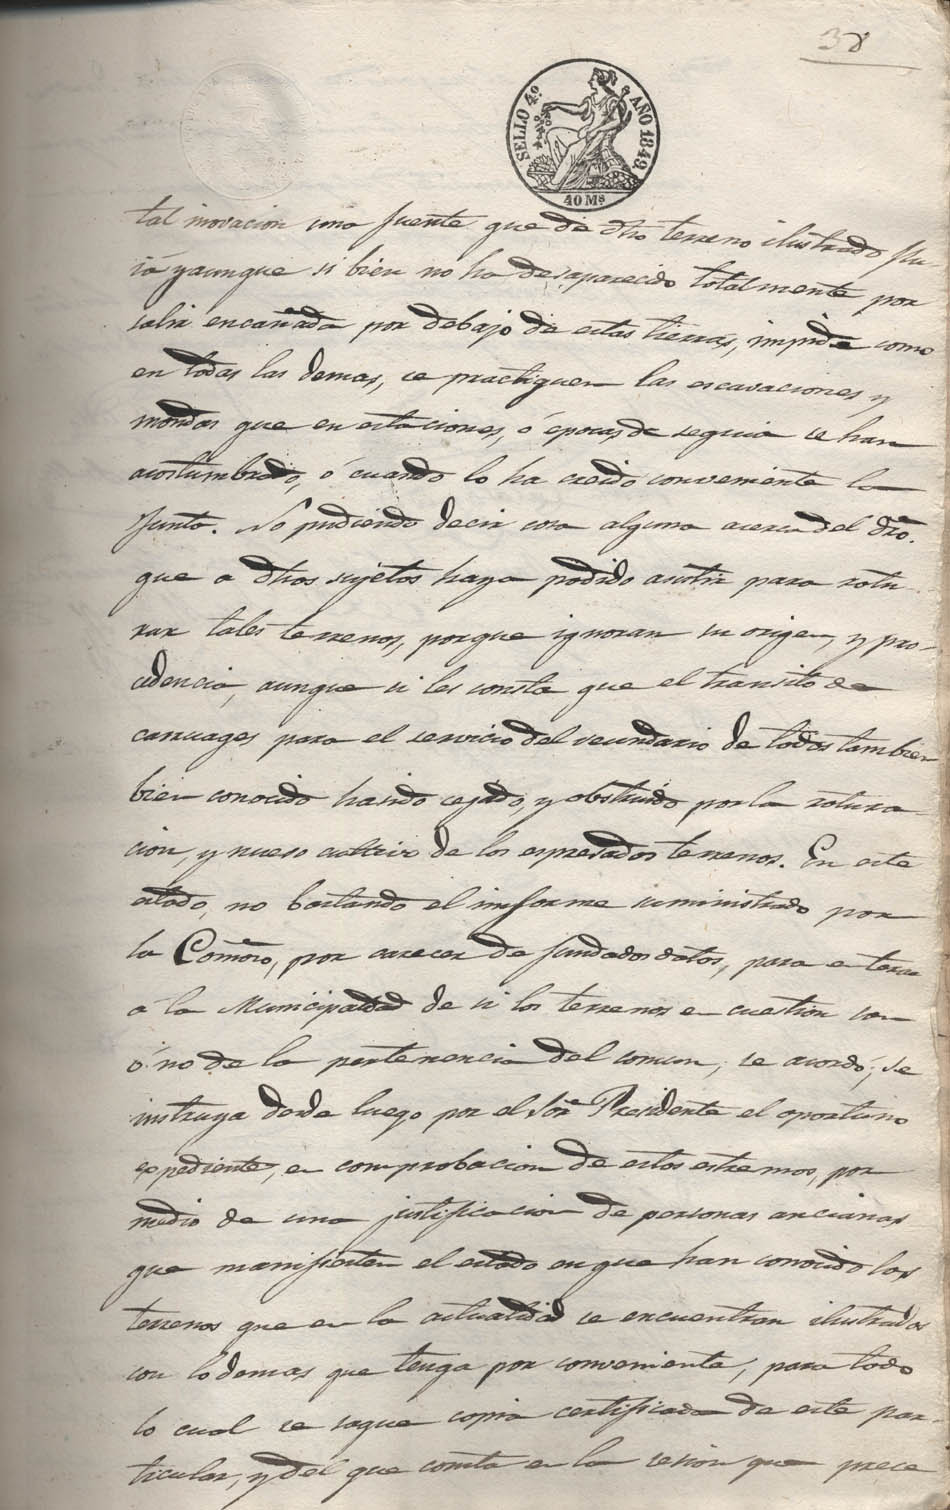 38
SELLO 4º AÑO 1849.
40 Ms
tal inovacion una fuente que de dho terreno ilustrado flu-
ia y aunque si bien no ha desaparecido totalmente por
salir encañada por debajo de estas tierras, impide como
en todas las demas, se practiquen las escavaciones y
mondas que en estaciones, ó épocas de sequia se han
acostumbrado, ó cuando lo ha creido conveniente la
Junta. No pudiendo decir cosa alguna acerca del dro.
que a dhos sujetos haya podido asistir para rotu
rar tales terrenos, porque ignoran su origen, y pro-
cedencia, aunque si les consta que el transito de
carruages para el servicio del vecindario de todos tambien
bien conocido ha sido cejado, y obstruido por la rotura
cion, y nuevo cultivo de los espresados terrenos. En este
estado, no bastando el informe suministrado por
la Comon, por carecer de fundados datos, para enterar
á la Municipalidad de si los terrenos en cuestion son
ó no de la pertenencia del comun, se acordó; se
instruya desde luego por el Sor Presidente el oportuno
expediente, en comprobacion de estos estremos, por
medio de una justificacion de personas ancianas
que manifiesten el estado en que han conocido los
terrenos que en la actualidad se encuentran ilustrados
con lo demas que tenga por conveniente, para todo
lo cual se saque copia certificada de este par-
ticular, y del que consta en la sesion que prece